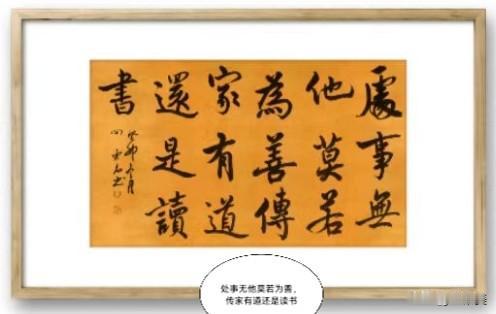 處事無
他莫若
為善傳
家有道
還是讀
書
癸卯
处事无他莫若为善，
传家有道还是读书